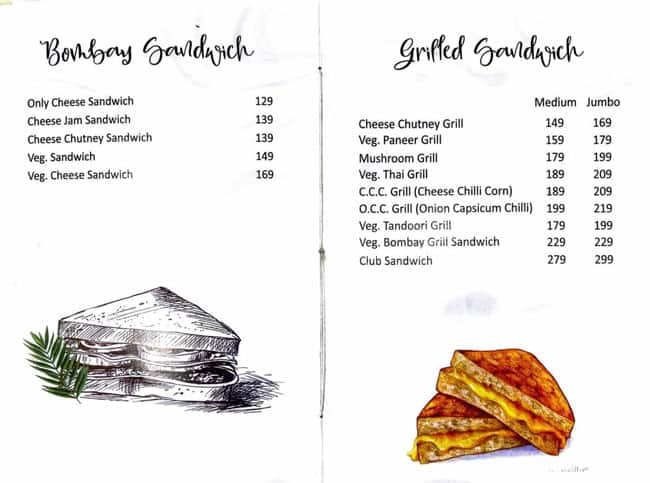 Bombay Sandwich
Only Cheese Sandwich 129
Cheese Jam Sandwich 139
Cheese Chutney Sandwich 139
Veg. Sandwich 149
Veg. Cheese Sandwich 169
Grilled Sandwich
Medium Jumbo
Cheese Chutney Grill 149 169
Veg. Paneer Grill 159 179
Mushroom Grill 179 199
Veg. Thai Grill 189 209
C.C.C. Grill (Cheese Chilli Corn) 189 209
O.C.C. Grill (Onion Capsicum Chilli) 199 219
Veg. Tandoori Grill 179 199
Veg. Bombay Grill Sandwich 229 229
Club Sandwich 279 299